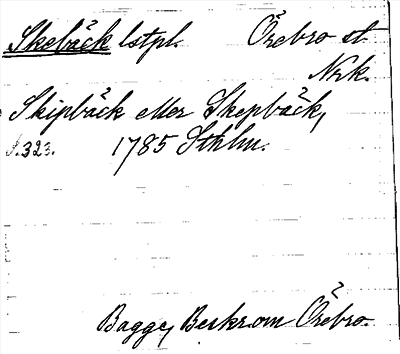 Skebäck lstpl. Örebro st.
Nrk.
Skipbäck eller Skepbäck,
S.323. 1785 Sthlm.
Bagge, Beskr. om Örebro.